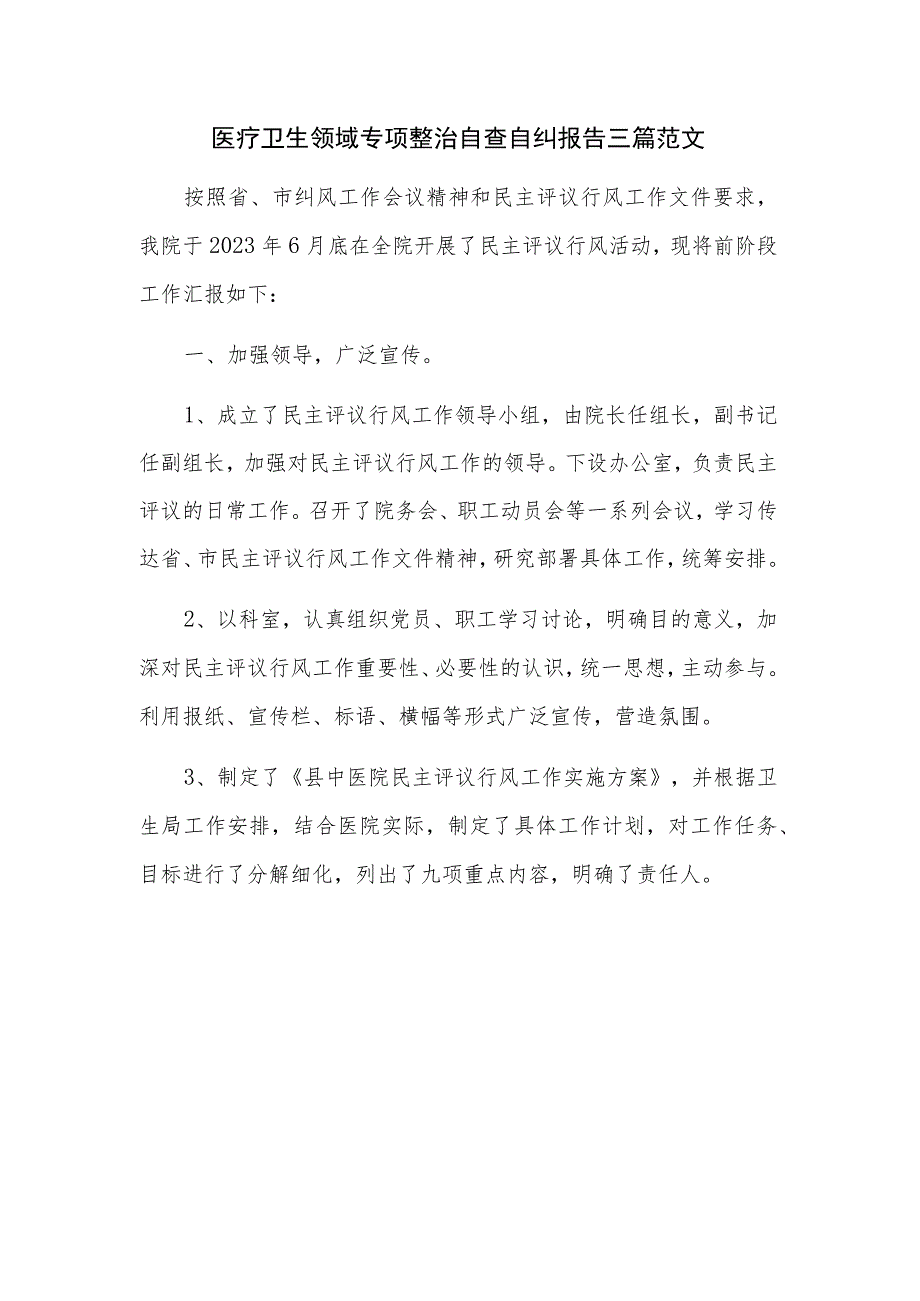 医疗卫生领域专项整治自查自纠报告三篇范文
按照省、市纠风工作会议精神和民主评议行风工作文件要求，
我院于 2023 年 6 月底在全院开展了民主评议行风活动，现将前阶段
工作汇报如下：
一、加强领导，广泛宣传。
1、成立了民主评议行风工作领导小组，由院长任组长，副书记
任副组长，加强对民主评议行风工作的领导。下设办公室，负责民主
评议的日常工作。召开了院务会、职工动员会等一系列会议，学习传
达省、市民主评议行风工作文件精神，研究部署具体工作，统筹安排。
2、以科室，认真组织党员、职工学习讨论，明确目的意义，加
深对民主评议行风工作重要性、必要性的认识，统一思想，主动参与。
利用报纸、宣传栏、标语、横幅等形式广泛宣传，营造氛围。
3、制定了《县中医院民主评议行风工作实施方案》，并根据卫
生局工作安排，结合医院实际，制定了具体工作计划，对工作任务、
目标进行了分解细化，列出了九项重点内容，明确了责任人。